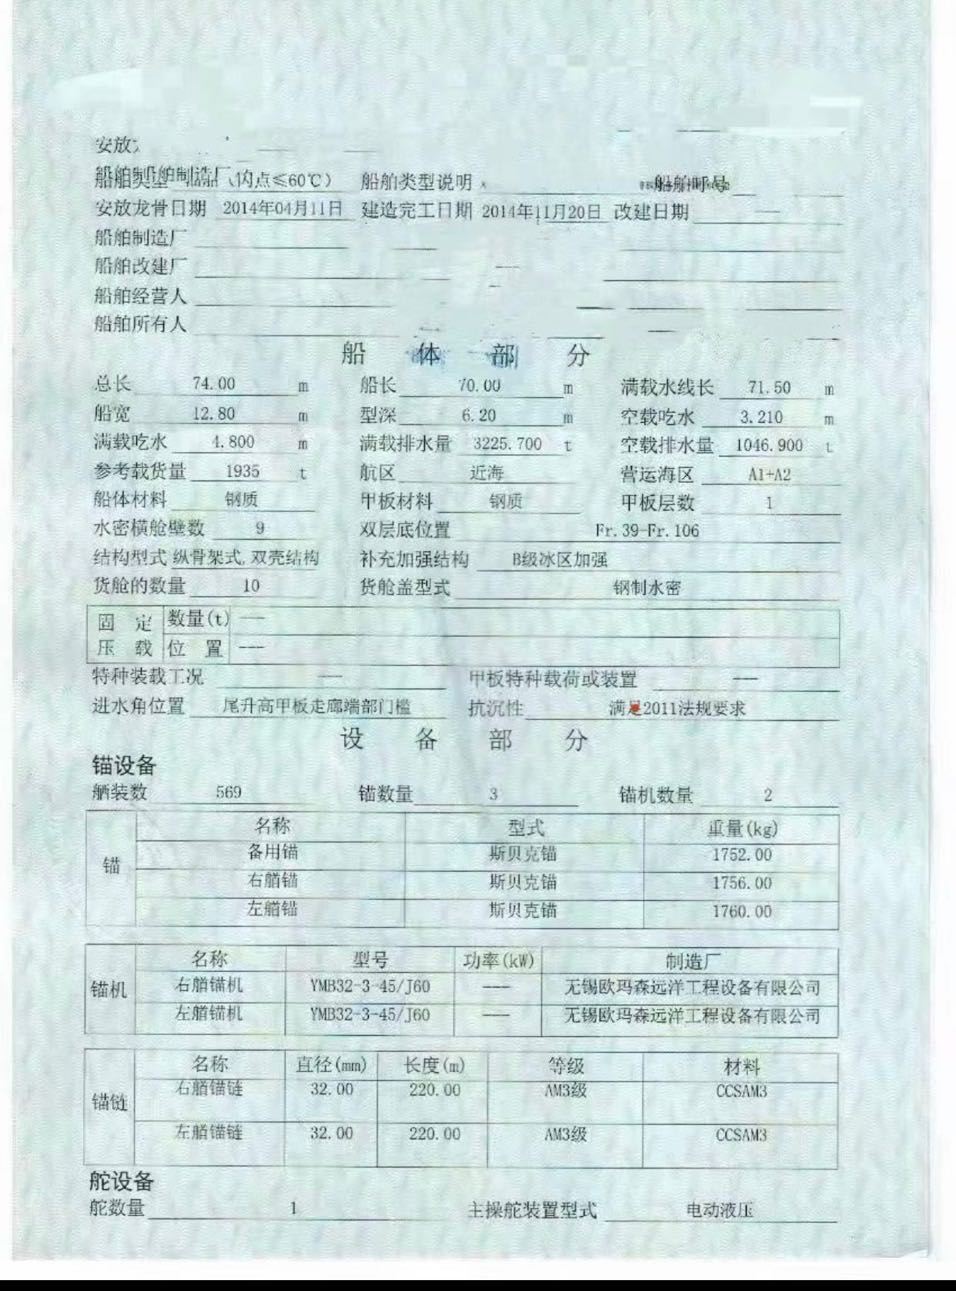 安放
(闪点≤60℃) 船舶类型说明 船舶呼号
安放龙骨日期 2014年04月11日 建造完工日期 2014年11月20日 改建日期 —
船舶制造厂
船舶改建厂 —
船舶经营人
船舶所有人
船 体 部 分
总长 74.00 m 船长 70.00 m 满载水线长 71.50 m
船宽 12.80 m 型深 6.20 m 空载吃水 3.210 m
满载吃水 4.800 m 满载排水量 3225.700 t 空载排水量 1046.900 t
参考载货量 1935 t 航区 近海 营运海区 A1+A2
船体材料 钢质 甲板材料 钢质 甲板层数 1
水密横舱壁数 9 双层底位置 Fr.39-Fr.106
结构型式 纵骨架式,双壳结构 补充加强结构 B级冰区加强
货舱的数量 10 货舱盖型式 钢制水密
固定压载 数量(t) —
位置 —
特种装载工况 — 甲板特种载荷或装置 —
进水角位置 尾升高甲板走廊端部门槛 抗沉性 满足2011法规要求
设 备 部 分
锚设备
舾装数 569 锚数量 3 锚机数量 2
锚 名称 型式 重量(kg)
备用锚 斯贝克锚 1752.00
右艏锚 斯贝克锚 1756.00
左艏锚 斯贝克锚 1760.00
锚机 名称 型号 功率(kW) 制造厂
右艏锚机 YMB32-3-45/J60 — 无锡欧玛森远洋工程设备有限公司
左艏锚机 YMB32-3-45/J60 — 无锡欧玛森远洋工程设备有限公司
锚链 名称 直径(mm) 长度(m) 等级 材料
右艏锚链 32.00 220.00 AM3级 CCSAM3
左艏锚链 32.00 220.00 AM3级 CCSAM3
舵设备
舵数量 1 主操舵装置型式 电动液压